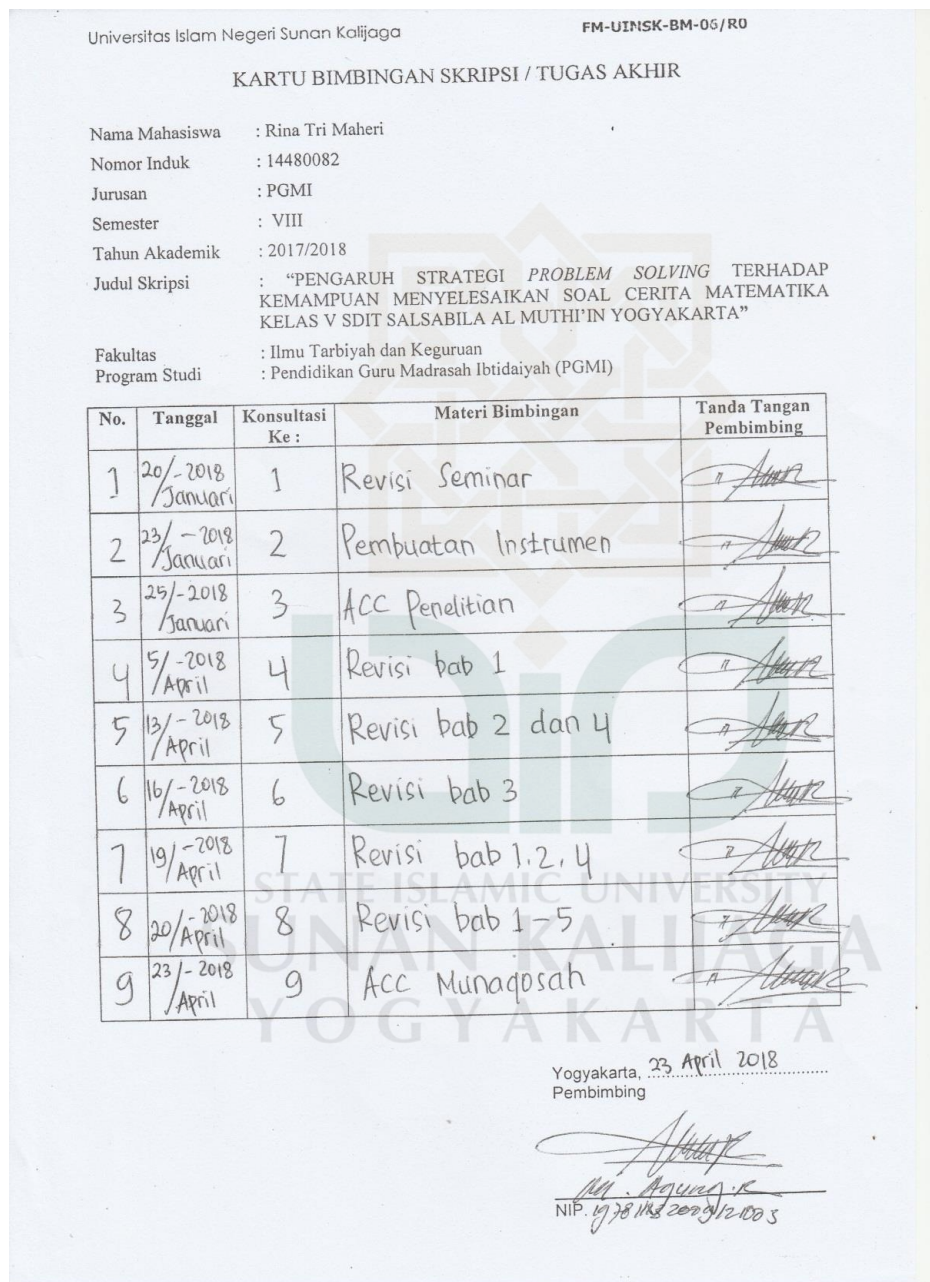 Universitas Islam Negeri Sunan Kalijaga
FM-UINSK-BM-06/R0
KARTU BIMBINGAN SKRIPSI / TUGAS AKHIR
Nama Mahasiswa : Rina Tri Maheri
Nomor Induk : 14480082
Jurusan : PGMI
Semester : VIII
Tahun Akademik : 2017/2018
Judul Skripsi : “PENGARUH STRATEGI PROBLEM SOLVING TERHADAP
KEMAMPUAN MENYELESAIKAN SOAL CERITA MATEMATIKA
KELAS V SDIT SALSABILA AL MUTHI’IN YOGYAKARTA”
Fakultas : Ilmu Tarbiyah dan Keguruan
Program Studi : Pendidikan Guru Madrasah Ibtidaiyah (PGMI)
No. Tanggal Konsultasi Ke : Materi Bimbingan Tanda Tangan Pembimbing
1 20/-2018 /Januari 1 Revisi Seminar
2 23/-2018 /Januari 2 Pembuatan Instrumen
3 25/-2018 /Januari 3 ACC Penelitian
4 5/-2018 /April 4 Revisi bab 1
5 13/-2018 /April 5 Revisi bab 2 dan 4
6 16/-2018 /April 6 Revisi bab 3
7 19/-2018 /April 7 Revisi bab 1,2,4
8 20/-2018 /April 8 Revisi bab 1-5
9 23/-2018 /April 9 ACC Munaqosah
STATE ISLAMIC UNIVERSITY
SUNAN KALIJAGA
YOGYAKARTA
Yogyakarta, 23 April 2018
Pembimbing
Agung.R
NIP.